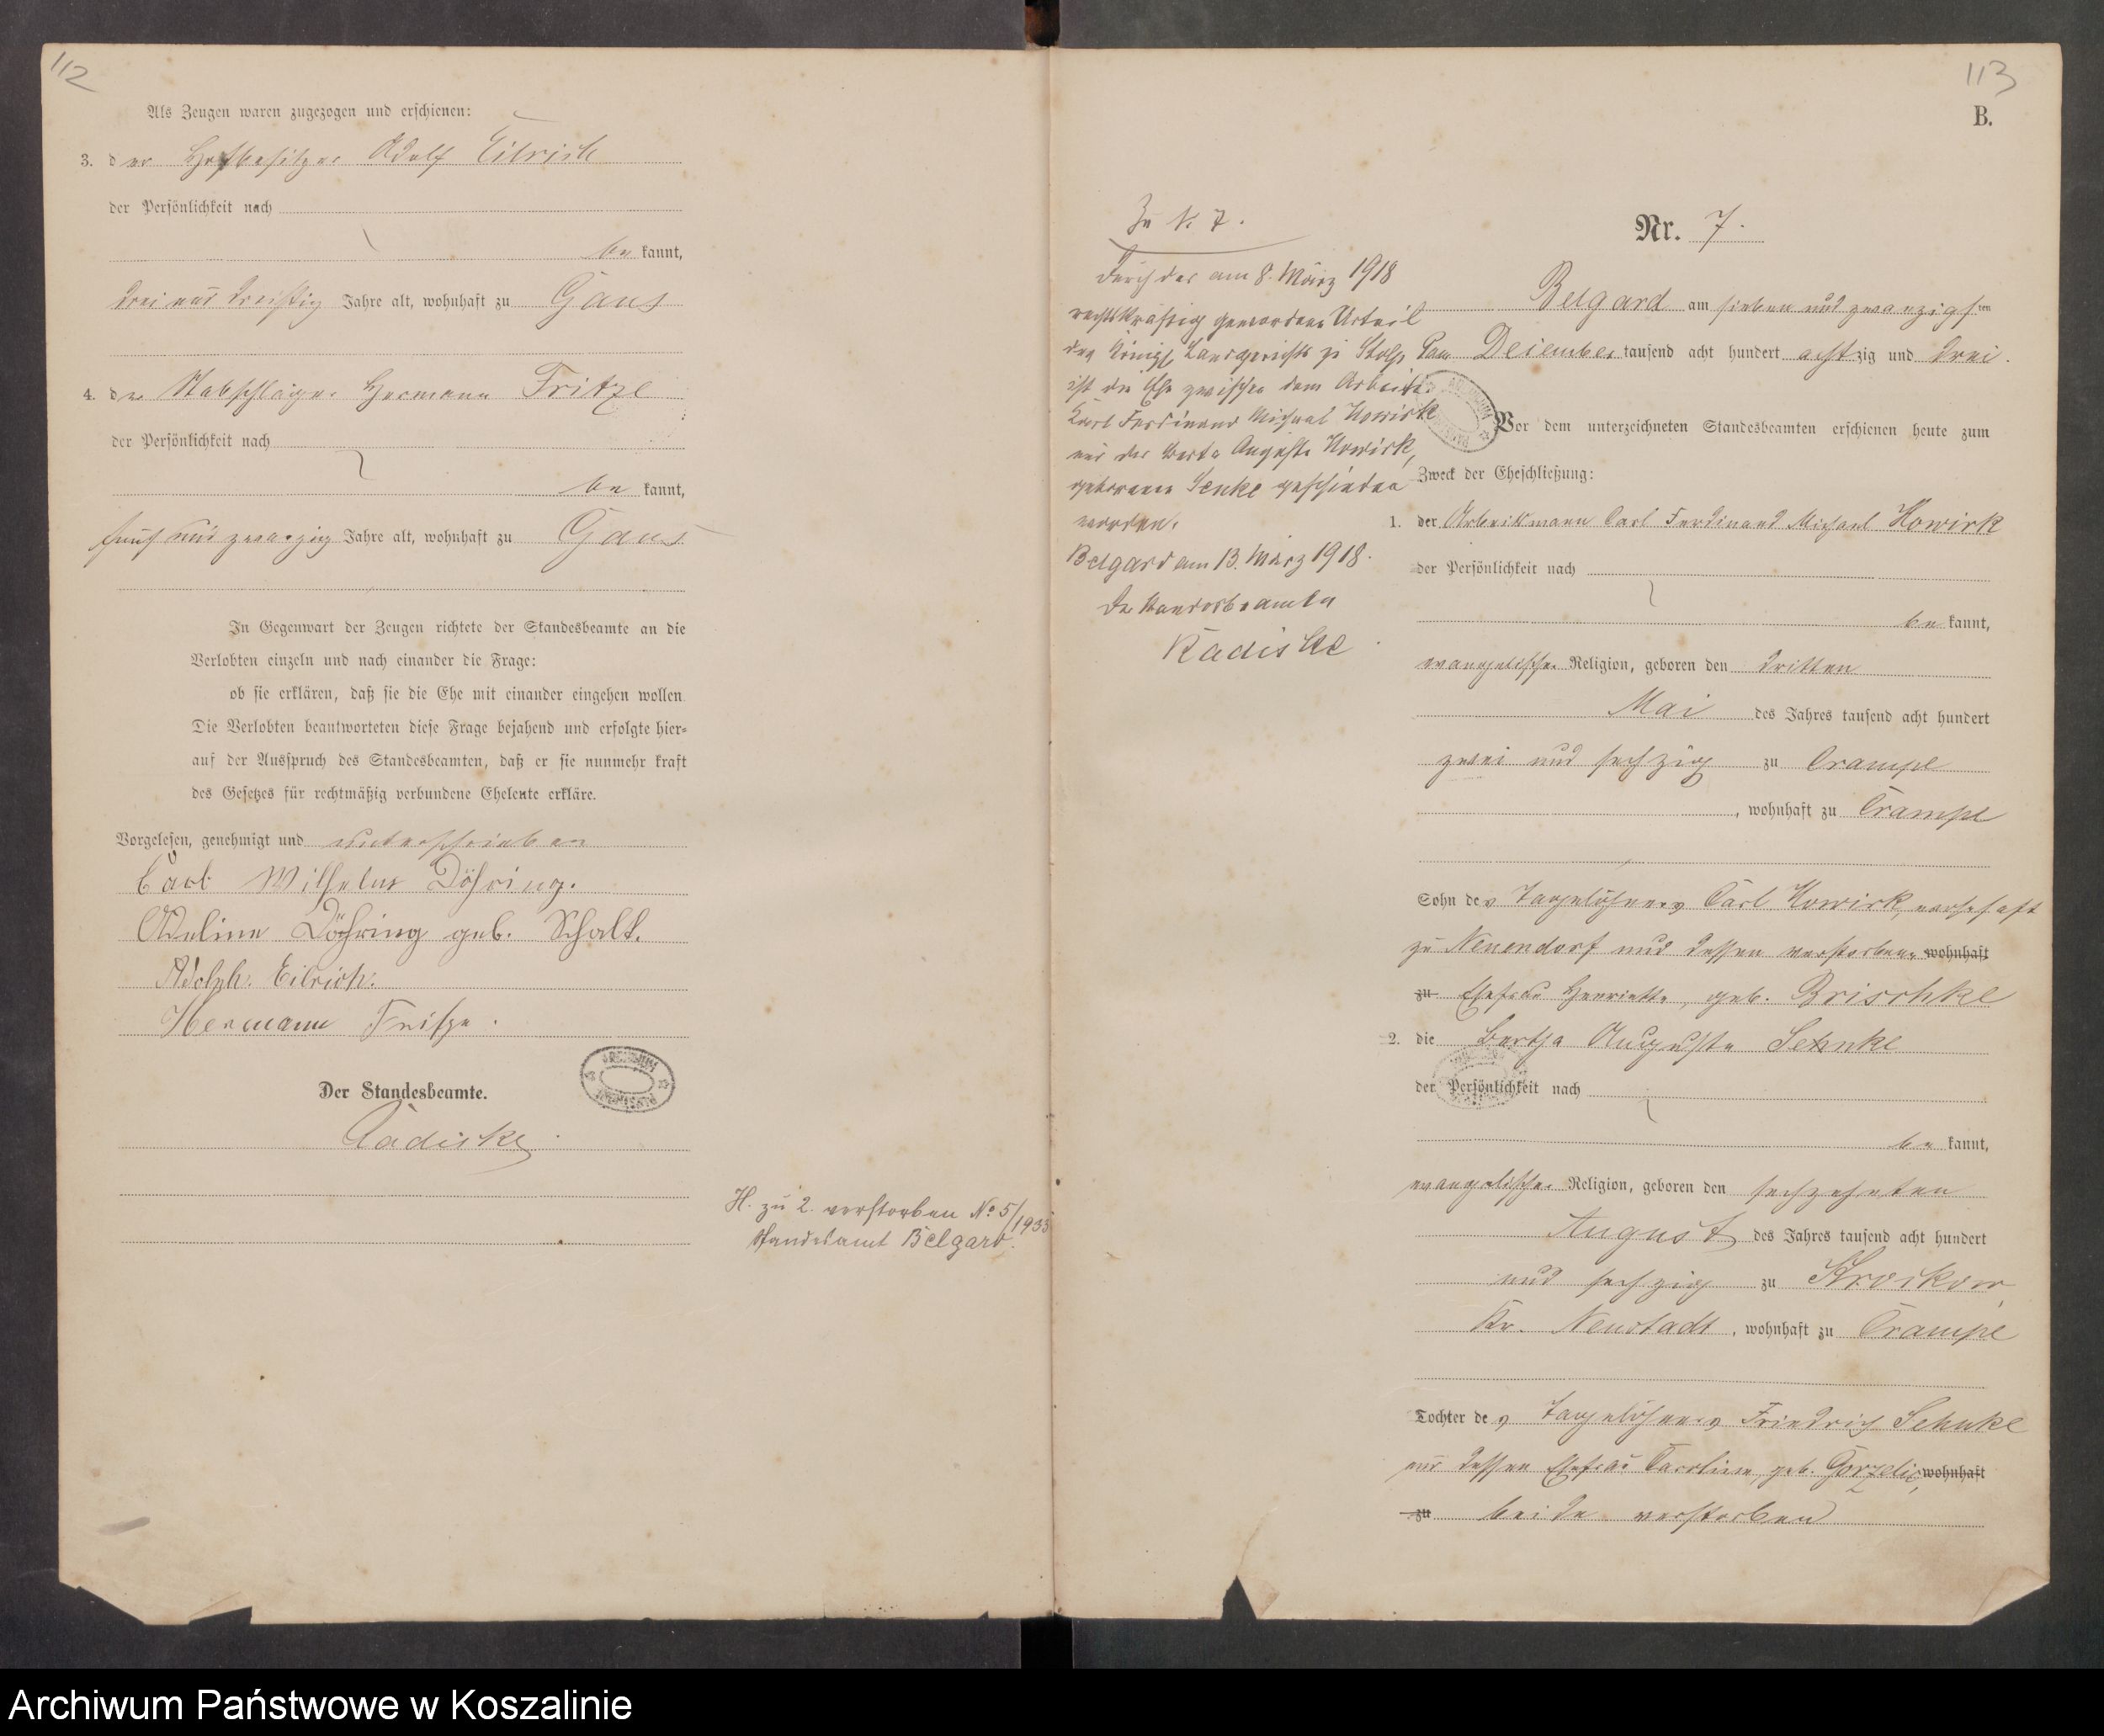 112
Als Zeugen waren zugezogen und erschienen:
3. der Hofbesitzer Adolf Eilrich
der Persönlichkeit nach
be kannt,
drei und dreißig Jahre alt, wohnhaft zu Gans
4. der Stabschläger Hermann Fritze
der Persönlichkeit nach
be kannt,
fünf und zwanzig Jahre alt, wohnhaft zu Gans
In Gegenwart der Zeugen richtete der Standesbeamte an die
Verlobten einzeln und nach einander die Frage:
ob sie erklären, daß sie die Ehe mit einander eingehen wollen.
Die Verlobten beantworteten diese Frage bejahend und erfolgte hier-
auf der Ausspruch des Standesbeamten, daß er sie nunmehr kraft
des Gesetzes für rechtmäßig verbundene Eheleute erkläre.
Vorgelesen, genehmigt und unterschrieben
Carl Wilhelm Döhring.
Adeline Döhring geb. Schalk.
Adolph Eilrich.
Hermann Fritze.
Der Standesbeamte.
Radiske.
H. zu 2. verstorben No 5/1933
Standesamt Belgard.
113
B.
Zu N. 7.
Durch das am 8. März 1918
rechtskräftig gewordene Urteil
des Königl. Landgerichts zu Stolp
ist die Ehe zwischen dem Arbeiter
Karl Ferdinand Michael Kowisk
und der Berta Auguste Kowisk,
geborenen Senke geschieden
worden.
Belgard am 13. März 1918.
Der Standesbeamte
Radiske
Nr. 7.
Belgard am sieben und zwanzigsten
Dezember tausend acht hundert achtzig und drei.
Vor dem unterzeichneten Standesbeamten erschienen heute zum
Zweck der Eheschließung:
1. der Arbeitsmann Carl Ferdinand Michael Kowisk
der Persönlichkeit nach
be kannt,
evangelischer Religion, geboren den dritten
Mai des Jahres tausend acht hundert
zwei und sechzig zu Crampe
, wohnhaft zu Crampe
Sohn des Tagelöhners Carl Kowisk, wohnhaft
zu Neuendorf und dessen verstorbene wohnhaft
zu Ehefrau Henriette, geb. Brischke
2. die Bertha Auguste Sehnke
der Persönlichkeit nach
be kannt,
evangelischer Religion, geboren den sechzehnten
August des Jahres tausend acht hundert
und sechzig zu Krockow,
Kr. Neustadt, wohnhaft zu Crampe
Tochter des Tagelöhners Friedrich Sehnke
und dessen Ehefrau Caroline, geb. wohnhaft
zu beide verstorben
Archiwum Państwowe w Koszalinie